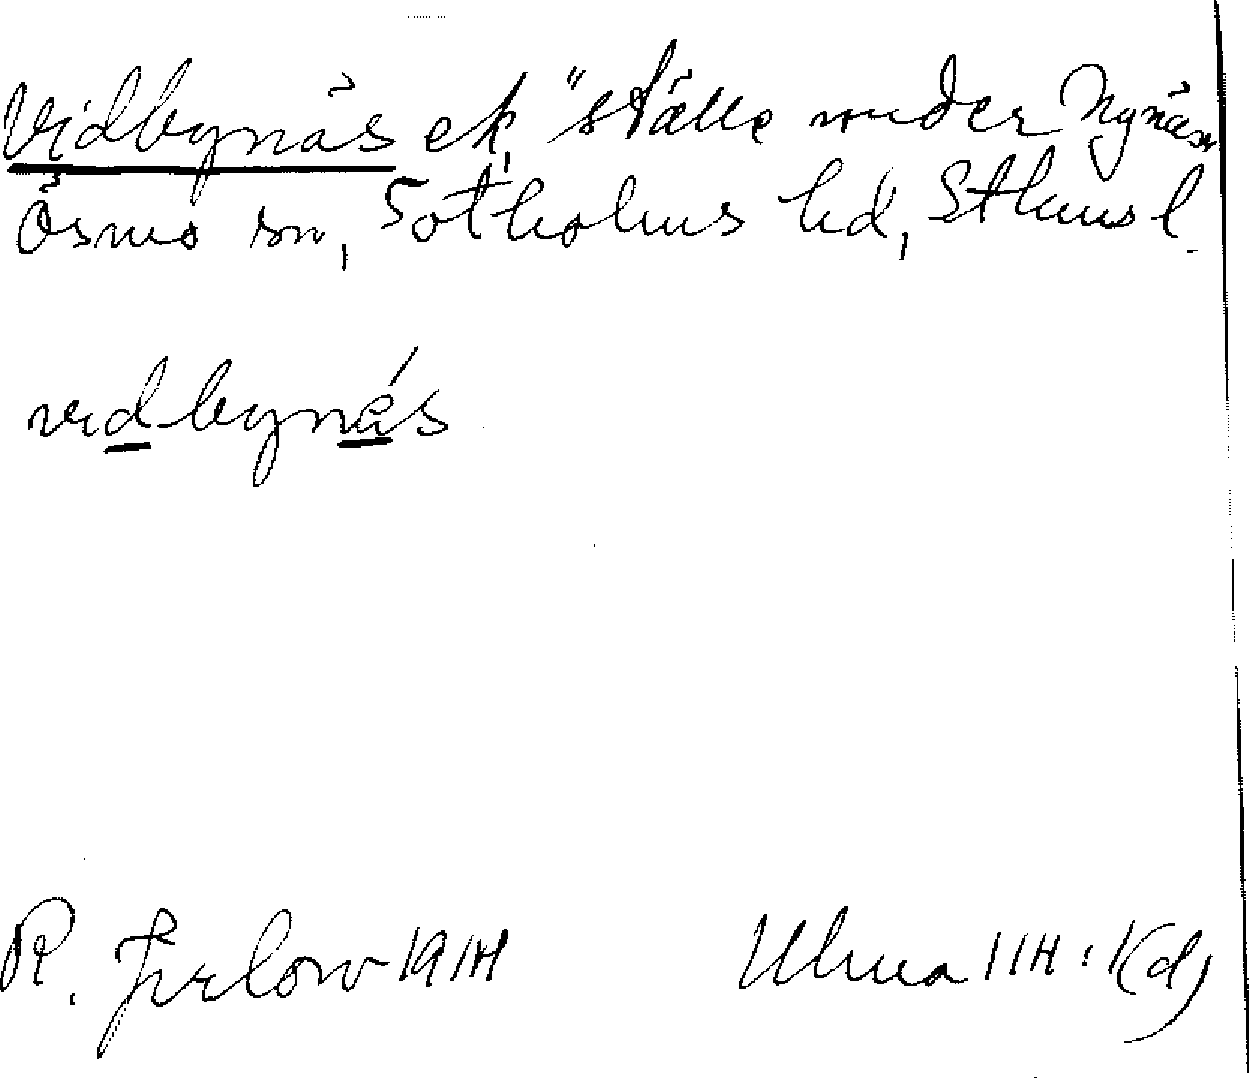 Vidbynäs ek, "ställe under Nynäs
Ösmo sn, Sotholms hd, Sthms l.
vidbynás
R. Jirlow 1914